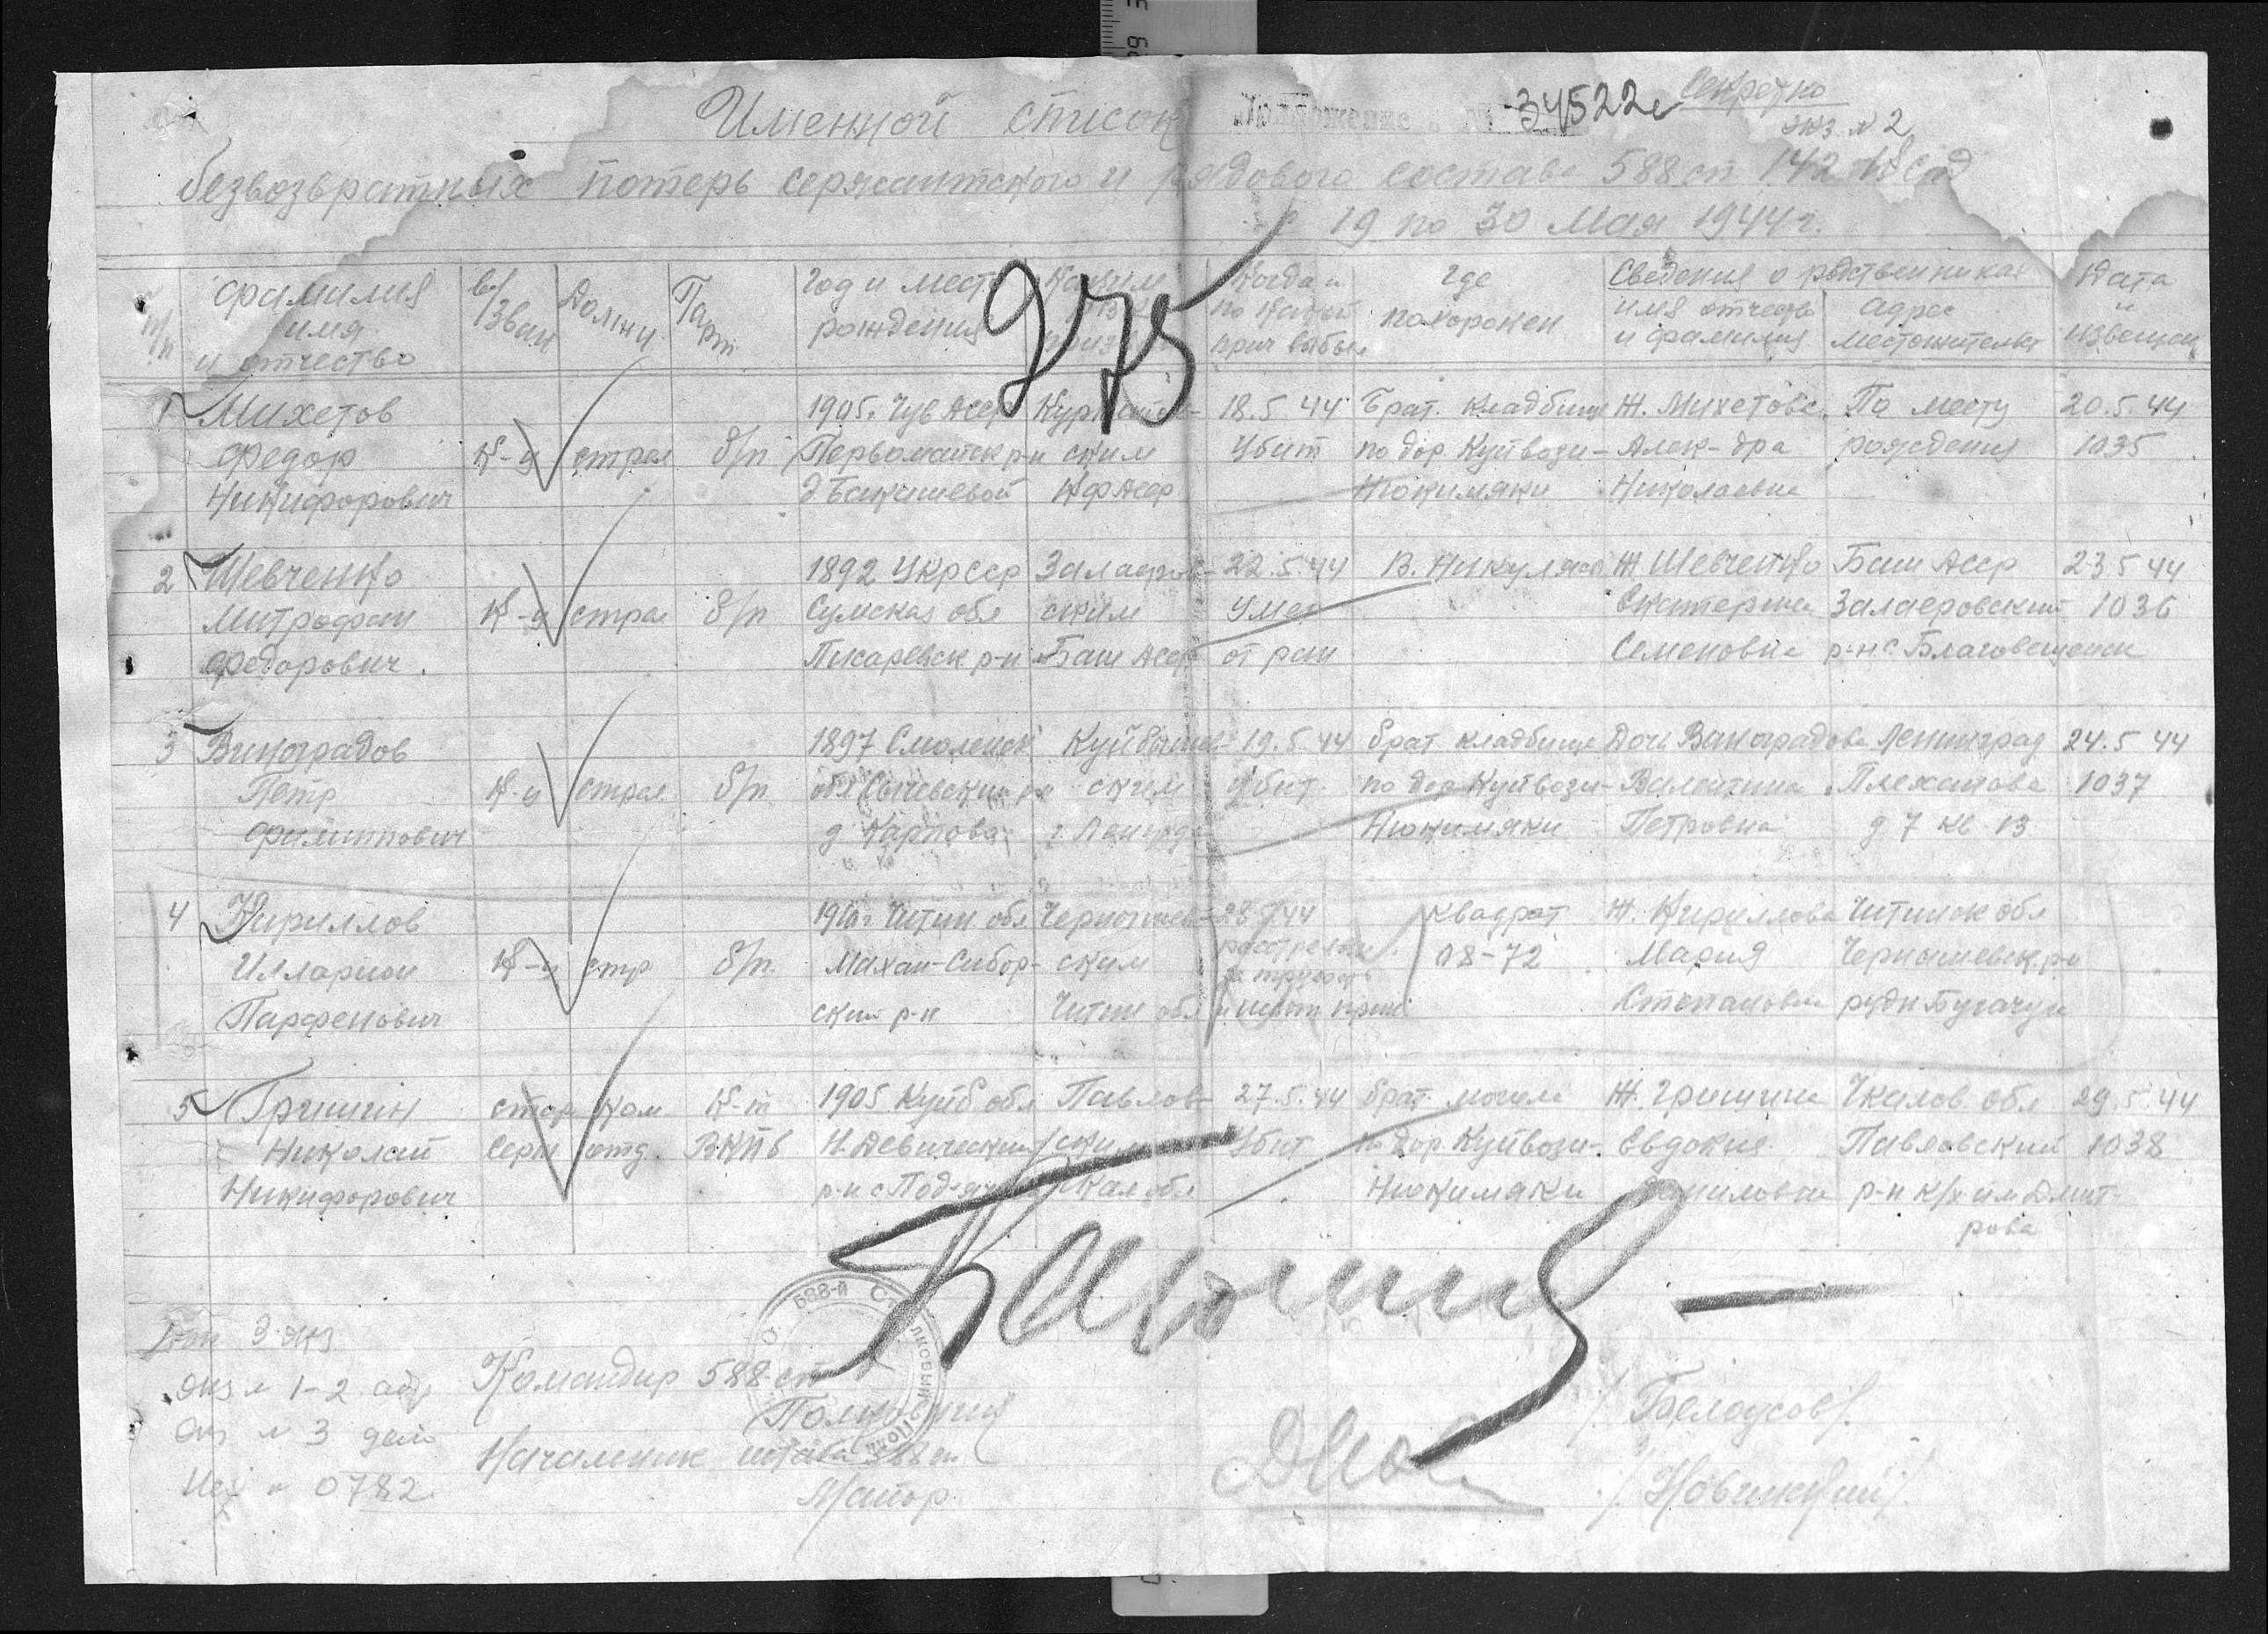 Секретно
экз. № 2
Приложение 34522с
Именной список
безвозвратных потерь сержантского и рядового состава 588 сп 142 сд
с 19 по 30 Мая 1944 г.
975
п/п
Фамилия имя и отчество
в/Зван
Должн
Парт
Год и место рождения
Каким
Когда и по какой прич выбыл
Где похоронен
Сведения о родственниках
имя отчество и фамилия
адрес местожительст
Дата и извещен
1 Михетов 1905г. Чув Асср 18.5.44 Брат. кладбище Ж. Михетова По месту 20.5.44
Федор К-ц стрел б/п Первомайск р-н ским Убит по дор Куйвози- Алек-дра рождения 1035
Никифорович КФАсср Нюкимяки Николаевна
2 Шевченко 1892 Укр сср 22.5.44 В. Никуляси Ж Шевченко Баш Асср 23.5.44
Митрофан К-ц стрел б/п Сумская обл ским Умер Екатерина 1036
Федорович. Писаревск р-н Баш Асср от ран Семеновна р-н с Благовещенск
3 Виноградов 1897 Смоленск Куйбышев- 19.5.44 брат кладбище Дочь Виноградова Ленинград 24.5.44
Петр К-ц стрел б/п обл Сычевский р-н ским Убит по дор Куйвози- Валентина Плеханова 1037
Филиппович д Карпова г. Ленингра Нюкимяки Петровна д 7 кв 13
4 Кириллов Читин обл Чернышев- квадрат Ж. Кириллова Читинск обл
Илларион К-ц стр б/п. ским расстрелян 08-72 Мария Чернышевск р-н
Парфенович ский р-н Читин обл Степановна рудн Букачун
5 Гришин стар ком К-т 1905 Куйб обл Павлов- 27.5.44 брат. могила Ж. Гришина Чкалов. обл 29.5.44
Николай серж отд. ВКПб Н. Девический ским Убит по дор Куйвози- Евдокия Павловский 1038
Никифорович р-н с Чкал обл Нюкимяки Даниловна р-н к/х им Дмит-
рова
3 экз
экз № 1-2 адр
экз № 3 дело
Исх № 0782
588-й
Командир 588 сп
Полковник /Белоусов/
Начальник штаба 588 сп
Майор /Новицкий/